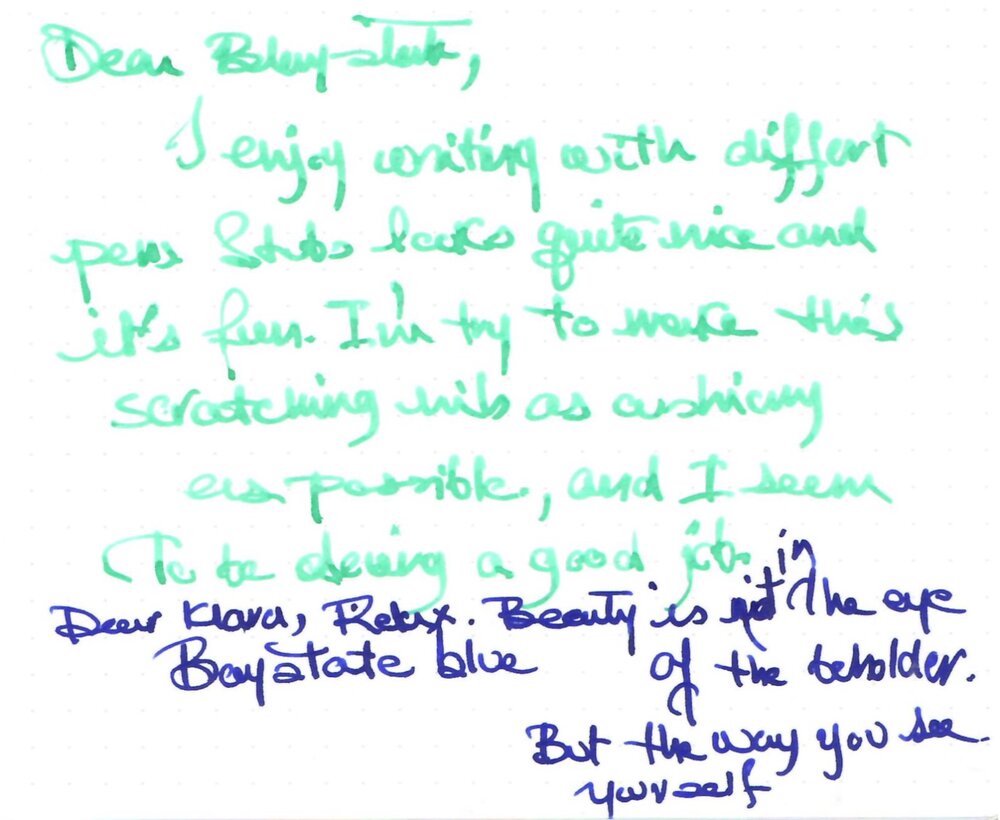 Dear Bay-state,
I enjoy writing with differt
pens Stubs looks quite nice and
it's fun. I'm try to make this
scratching nib as cushiony
as possible, and I seem
To be doing a good job
Dear Klara, Relax. Beauty is not in The eye
Baystate blue of the beholder.
But the way you see
yourself